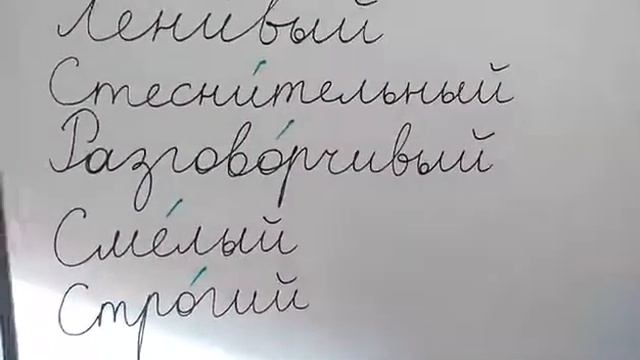 Ленивый
Стесни́тельный
Разгово́рчивый
Сме́лый
Стро́гий